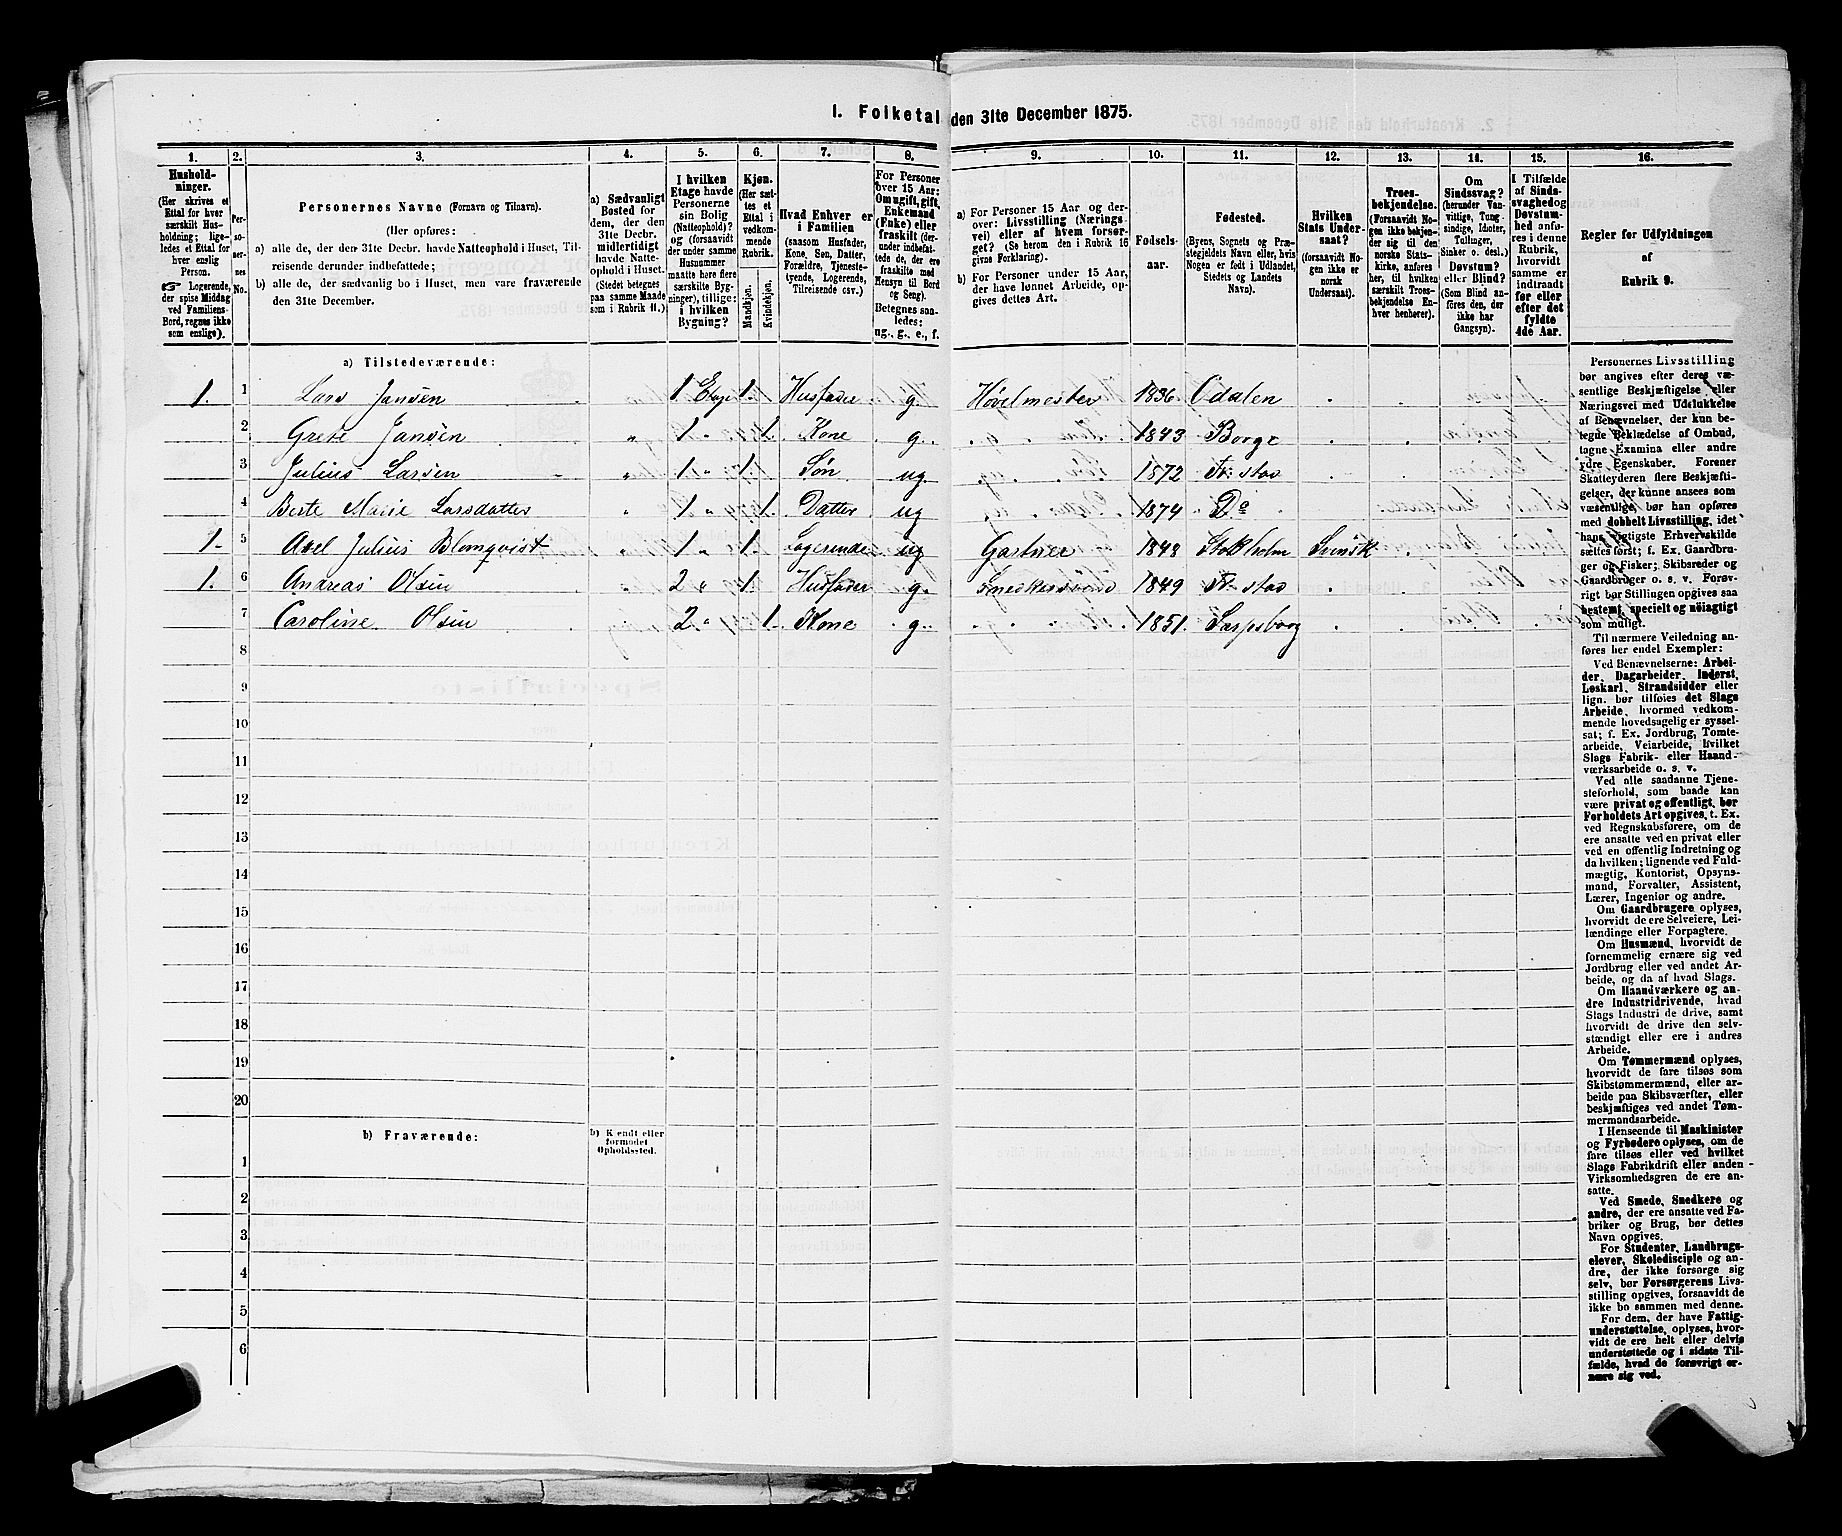 1. Folketal den 31te December 1875.
1. 2. 3. 4. 5. 6. 7. 8. 9. 10. 11. 12. 13. 14. 15. 16.
Hushold-
ninger.
(Her skrives et
Ettal for hver
særskilt Hus-
holdning; lige-
ledes et Ettal for
hver enslig
Person.
☞ Logerende,
der spise Middag
ved Familiens
Bord, regnes ikke
som enslige).
Per-
so-
ner-
nes
No.
Personernes Navne (Fornavn og Tilnavn).
(Her opføres:
a) alle de, der den 31te Decbr. havde Natteophold i Huset, Til-
reisende derunder indbefattede;
b) alle de, der sædvanlig bo i Huset, men vare fraværende
den 31te December.
a) Sædvanligt
Bosted for
dem, der den
31te Decbr.
midlertidigt
havde Natte-
ophold i Huset.
(Stedet betegnes
paa samme Maade
som i Rubrik 11.)
I hvilken
Etage havde
Personerne
sin Bolig
(Natteophold)?
og (forsaavidt
der under samme
Husnummer
maatte høre flere
særskilte Byg-
ninger), tillige:
i hvilken
Bygning?
Kjøn.
(Her sæt-
tes et
Ettal i
vedkom-
mende
Rubrik.
Mandkjøn.
Kvindekjøn.
Hvad Enhver er
i Familien
(saasom Husfader,
Kone, Søn, Datter,
Forældre, Tjeneste-
tyende, Logerende,
Tilreisende osv.)
For Personer
over 15 Aar:
Om ugift, gift,
Enkemand
(Enke) eller
fraskilt (der-
under indbefat-
tede de, der ere
fraskilte med
Hensyn til Bord
og Seng).
Betegnes saa-
ledes:
ug., g., e., f.
a) For Personer 15 Aar og der-
over: Livsstilling (Nærings-
vei) eller af hvem forsør-
get? (Se herom den i Rubrik 16
givne Forklaring).
b) For Personer under 15 Aar,
der have lønnet Arbeide, op-
gives dettes Art.
Fødsels-
aar.
Fødested.
(Byens, Sognets og Præ-
stegjeldets Navn eller, hvis
Nogen er født i Udlandet,
Stedets og Landets
Navn).
Hvilken
Stats Under-
saat?
(forsaavidt No-
gen ikke er
norsk
Undersaat).
Troes-
bekjendelse.
(Forsaavidt No-
gen ikke bekjen-
der sig til den
norske Stats-
kirke, anføres
her, til hvilken
særskilt Troes-
bekjendelse En-
hver henhører).
Om
Sindssvag?
(herunder Van-
vittige, Tung-
sindige, Idioter,
Tullinger,
Sinker o. desl.).
Døvstum?
eller Blind?
(Som Blind an-
føres den, der
ikke har
Gangsyn).
I Tilfælde
af Sinds-
svaghed og
Døvstum-
hed anfø-
res i denne
Rubrik,
hvorvidt
samme er
indtraadt
før eller
efter det
fyldte
4de Aar.
Regler for Udfyldningen
af
Rubrik 9.
a) Tilstedeværende:
1. 1 Lars Jansen 1 Etage 1. Husfader g. Høvelmester 1836 Odalen
2 Grete Jansen „ 1 „ 1. Kone g. „ „ 1843 Borge
3 Julius Larsen „ 1 „ 1. Søn ug. 1872 Fr:stad
4 Berte Marie Larsdatter „ 1 „ 1. Datter ug 1874 Do
1. 5 Axel Julius Blomqvist „ 1 „ 1. Logerende ug Gartner 1843 Stokholm Svensk
1. 6 Andreas Olsen 2 „ 1. Husfader g. Snedkersvend 1849 Fr:stad
7 Caroline Olsen 2 „ 1. Kone g. „ „ 1851. Sarpsborg
8
9
10
11
12
13
14
15
16
17
18
19
20
b) Fraværende:
b) Kjendt eller
formodet
Opholdssted.
1
2
3
4
5
6
Personernes Livsstilling
bør angives efter deres væ-
sentlige Beskjæftigelse eller
Næringsvei med Udelukkelse
af Benævnelser, der kun be-
tegne Beklædelse af Ombud,
tagne Examina eller andre
ydre Egenskaber. Forener
Skatteyderen flere Beskjæfti-
gelser, der kunne ansees som
væsentlige, bør han opføres
med dobbelt Livsstilling, idet
hans vigtigste Erhvervskilde
sættes først; f. Ex. Gaardbru-
ger og Fisker; Skibsreder og
Gaardbruger o. s. v. Forøv-
rigt bør Stillingen opgives saa
bestemt, specielt og nøiagtigt
som muligt.
Til nærmere Veiledning an-
føres her endel Exempler:
Ved Benævnelserne: Arbei-
der, Dagarbeider, Inderst,
Løskarl, Strandsidder eller
lign. bør tilføies det Slags
Arbeide, hvormed vedkom-
mende hovedsagelig er syssel-
sat; f. Ex. Jordbrug, Tomte-
arbeide, Veiarbeide, hvilket
Slags Fabrik- eller Haand-
værksarbeide o. s. v.
Ved alle saadanne Tjene-
steforhold, som baade kan
være privat og offentligt, bør
Forholdets Art opgives, t. Ex.
ved Regnskabsførere, om de
ere ansatte ved en privat eller
ved en offentlig Indretning og
da hvilken; lignende ved Fuld-
mægtig, Kontorist, Opsyns-
mand, Forvalter, Assistent,
Lærer, Ingeniør og andre.
Om Gaardbrugere oplyses,
hvorvidt de ere Selveiere, Lei-
lændinge eller Forpagtere.
Om Husmænd, hvorvidt de
fornemmelig ernære sig ved
Jordbrug eller ved andet Ar-
beide, og da af hvad Slags.
Om Haandværkere og an-
dre Industridrivende, hvad
Slags Industri de drive, samt
hvorvidt de drive den selv-
stændigt eller ere i andres
Arbeide.
Om Tømmermænd oplyses,
hvorvidt de fare tilsøs som
Skibstømmermænd, eller ar-
beide paa Skibsværfter, eller
beskjæftiges ved andet Tøm-
mermandsarbeide.
I Henseende til Maskinister
og Fyrbødere oplyses, om de
fare tilsøs eller ved hvilket
Slags Fabrikdrift eller anden
Virksomhedsgren de ere an-
satte.
Ved Smede, Snedkere og
andre, der ere ansatte ved Fa-
briker og Brug, bør dettes
Navn opgives.
For Studenter, Landbrugs-
elever, Skoledisciple og an-
dre, der ikke forsørge sig
selv, bør Forsørgerens Livs-
stilling opgives, forsaavidt de
ikke bo sammen med denne.
For dem, der have Fattig-
understøttelse, oplyses, hvor-
vidt de ere helt eller delvis
understøttede og i sidste Til-
fælde, hvad de forøvrigt er-
nære sig ved.